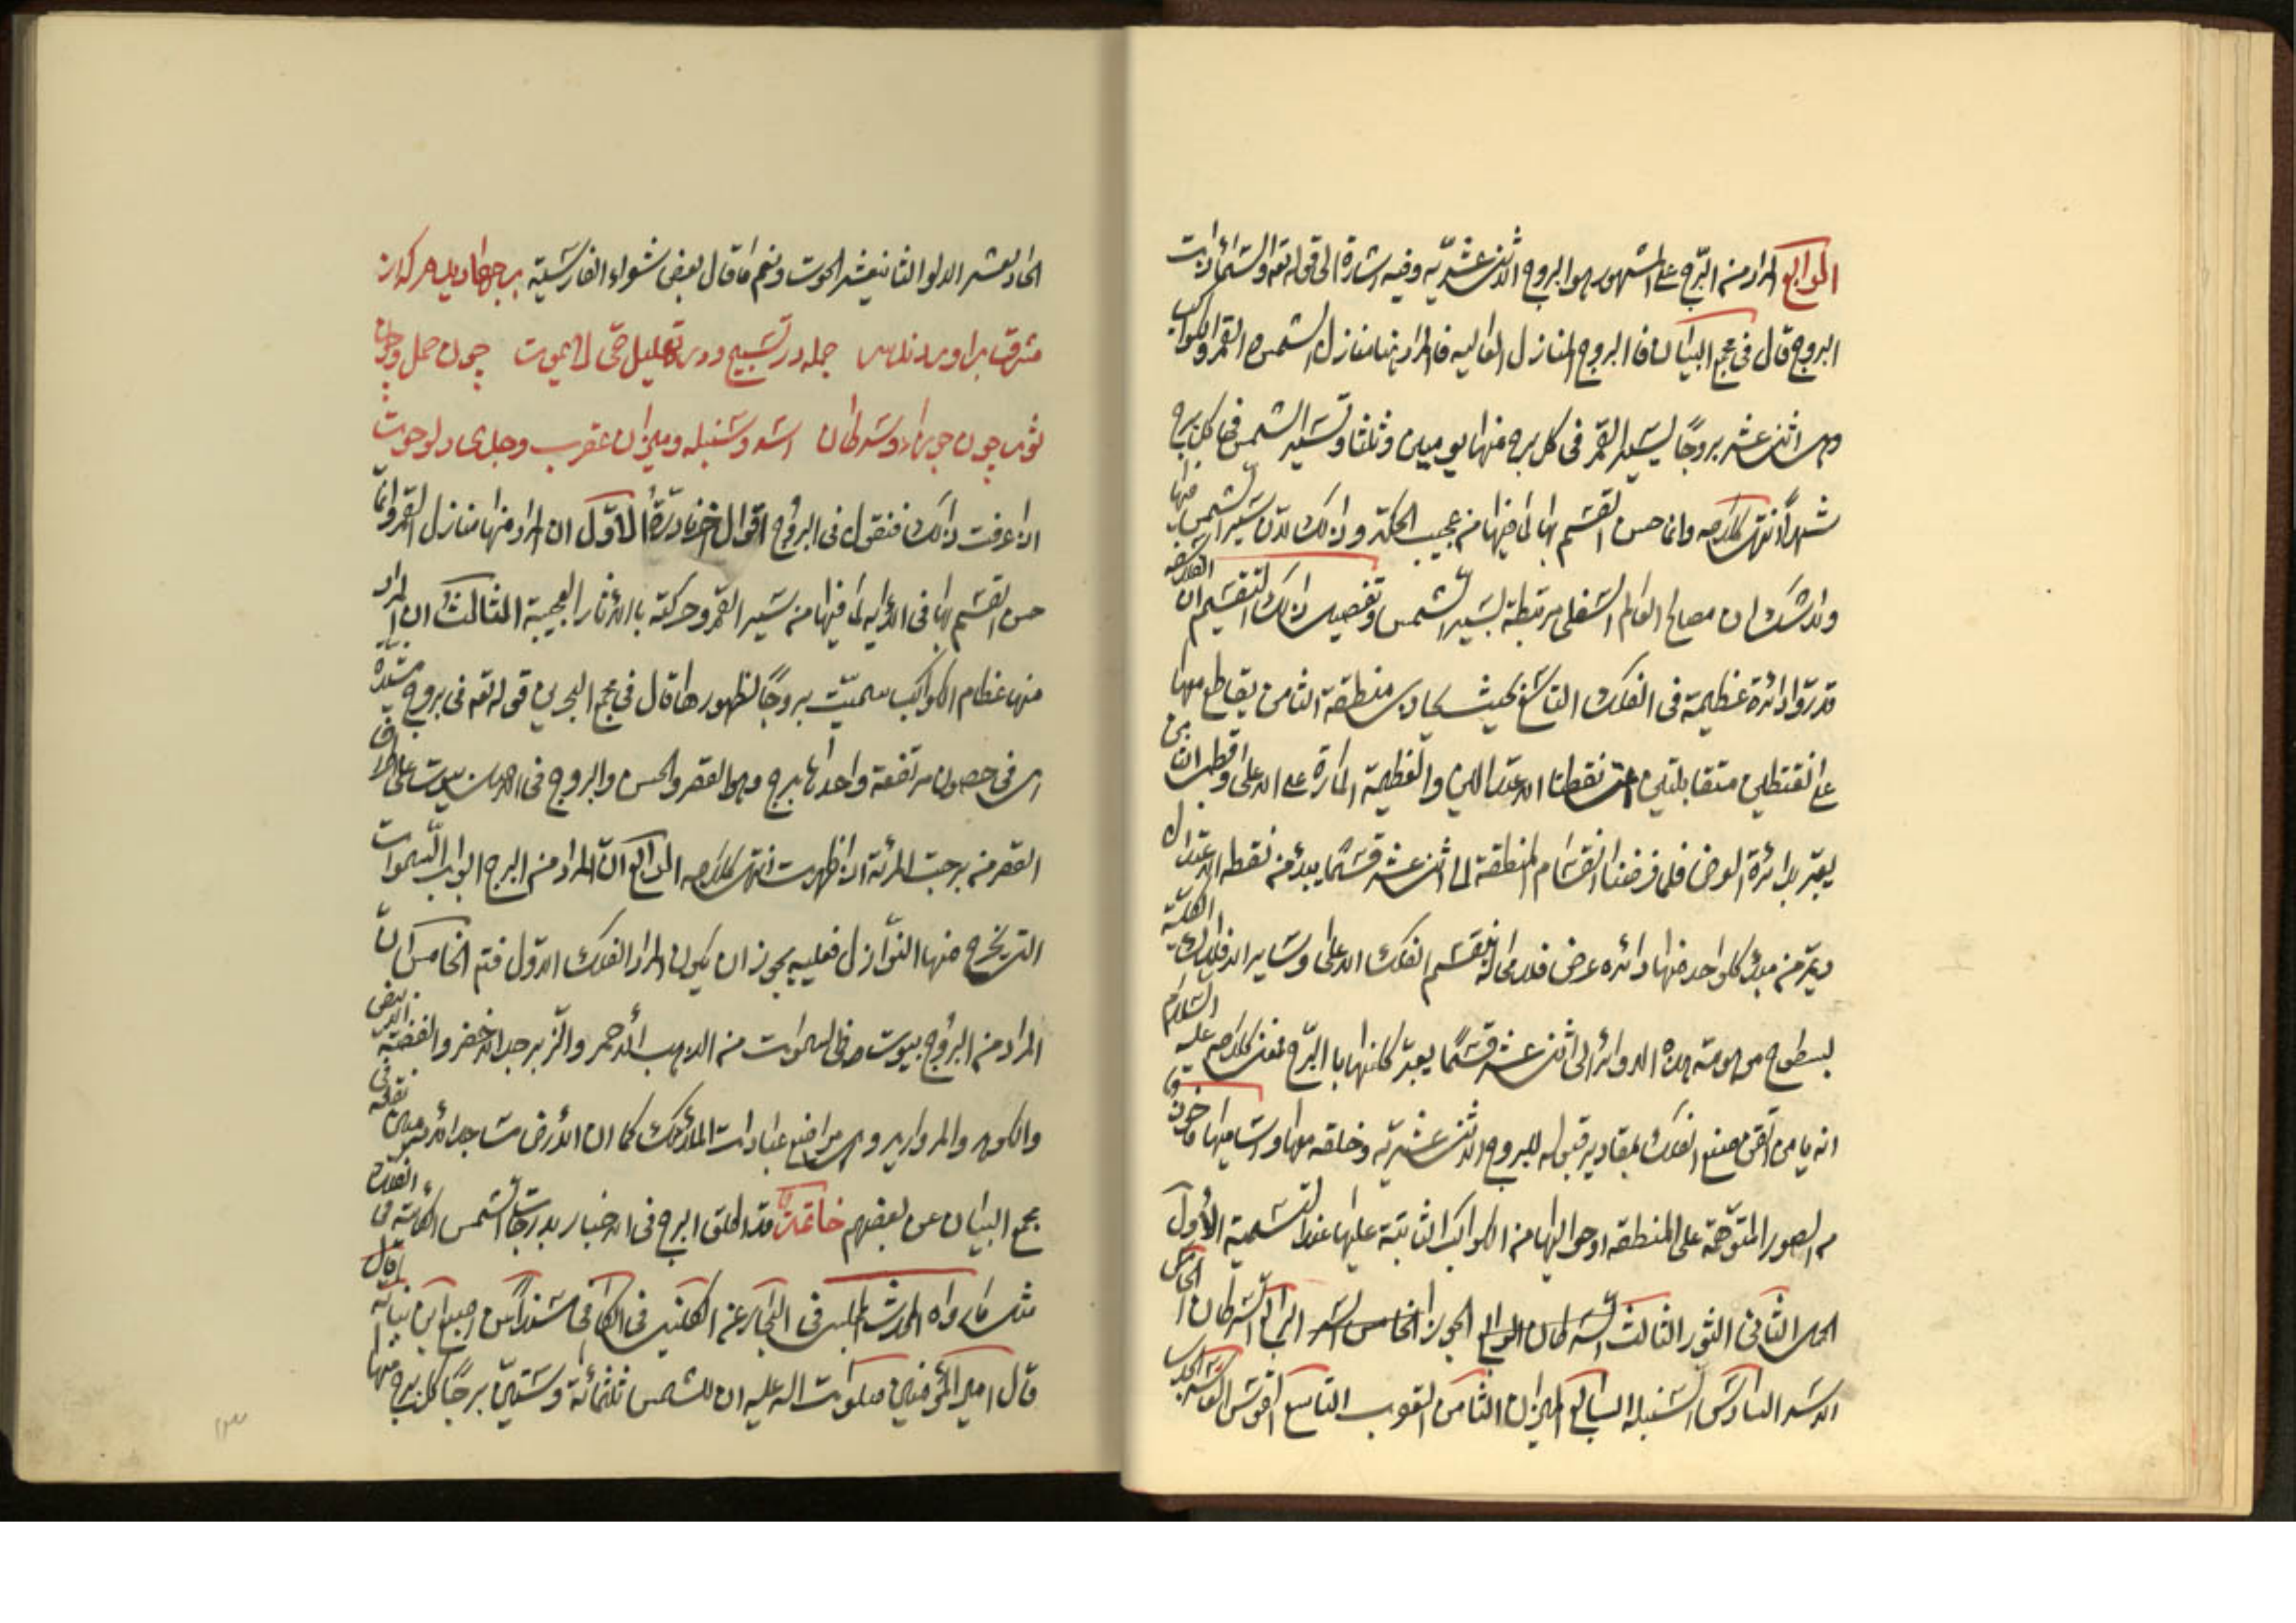 الرابع المراد من البرج على المشهور هو البروج الاثنى عشريّه وفيه اشارة الى قوله تعه والسّماء ذات
البروج قال فى مجمع البيان فا البروج المنازل العاليه فالمراد بها منازل الشمس والقمر والكواكب
وهى اثنى عشر بروجًا يسير القمر فى كل برج منها يومين وثلثا وتسير الشمس فى كل برج
شهرًا انتهى كلامه وانما حسن القسم بها لما فيها من عجيب الحكمة وذلك لان سير الشمس فيها
ولا شك ان مصالح العالم السّفلى مرتبطة بسير الشّمس وتفصيل ذلك التقسيم ان الفلاسفه
قدروا دائرة عظيمة فى الفلك التاسع بحيث يحاذى منطقة الثامن يقاطع معها
على نقتطين متقابلتين نقطتا الاعتدالين والعظيمة المارة على الاعلى وقطبان من
يعبّر بدائرة العرض فلما فرضنا انقسام المنطقة الى اثنى عشر قسمًا يبدء من نقطه الاعتدال
ويمرّ من مبدء كلواحد منها دائره عرض فلا محالة ينقسم الفلك الاعلى وساير الافلاك الكليّة
بسطوح موهومة هذه الدوائر الى اثنى عشر قسمًا يعبّر كلنها با البرج فمعنى كلامه عليه السّلام
انه يا من اتقن صنع الفلك بمقادير قبوله للبروج الاثنى عشريّه وخلقه مهدا وساميها ماخوذة
من الصور المتوهمة على المنطقه او حواليها من الكواكب الثابتة عليها عند التسمية الأول
الحمل الثانى الثور الثالث الجوزا الرابع السّرطان الخامس
الاسد السادس السّنبله السابع الميزان الثامن العقرب التاسع القوس العاشر الجدى
الحاديعشر الدلو الثانيعشر الحوت ونعم ما قال بعض شعراء الفارسّية برجها ديدم كه از
مشرق براوردند سر جمله در تسبيح ودر تهليل حى لا يموت چون حمل چون
ثور چون جوزاء وسرطان اسد وسنبله وميزان عقرب وجدى دلو حوت
اذا عرفت ذلك فنقول فى البروج اقوال اخر نادرة الاوّل ان المراد منها منازل القمر وانّما
حسن القسم بها فى الآيه لما فيها من سير القمر وحركته با الآثار العجيبة الثالث ان المراد
منها عظام الكواكب سميّت بروجًا لظهورها قال فى مجمع البحرين قوله تعه فى بروج مشيّدة
اى فى حصون مرتفعة واحدها برج وهو القصر والحسن والبروج فى الاصل بيوت على اطراف
القصر من برجت المرئة اذا ظهرت انتهى كلامه الرابع انّ المراد من البرج ابواب السّموات
التى يخرج منها النوّازل فعليه يجوز ان يكون المراد الفلك الاول فتم الخامس انّ
المراد من البروج بيوت فى السموات من الذهب الأحمر والزّبرجد الاخضر والفضّة الابيض
والكوهر والمرواريد وهى مواضع عبادات الملائكة كما ان الأرض مساجد نقله فى
مجمع البيان عن بعضهم خاتمة قد اطلق البرج فى الاخبار بدرجات الشّمس الكائنة فى الفلك
مثل ما رواه المحدث المجلسى فى البحار عن الكلينى فى الكافى مسندا عن اصبغ ابن نباته قال
قال امير المؤمنين صلوات الله عليه ان للشمس ثلثمائة وستيّن برجًا كل برج منها